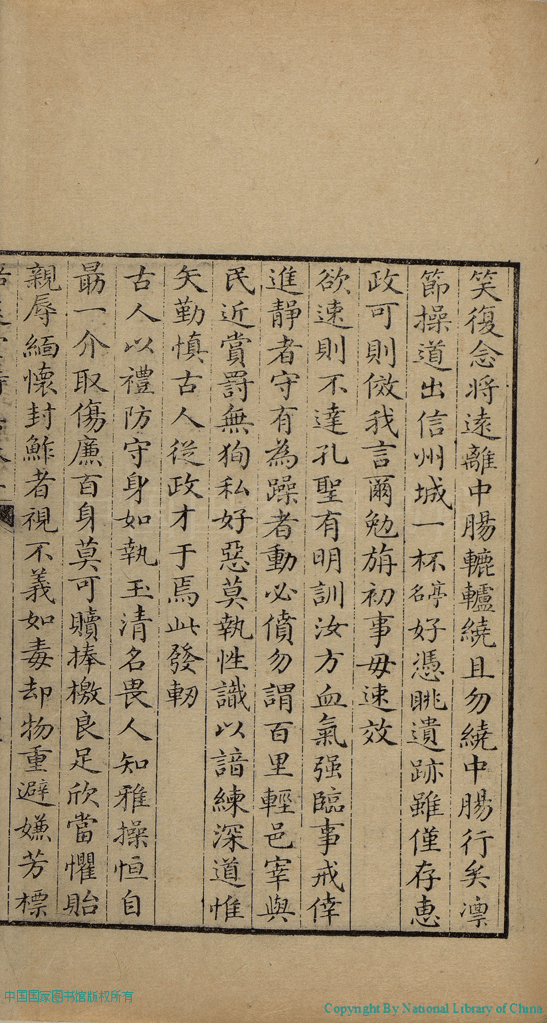 笑復念将遠離中腸轆轤繞且勿繞中腸行矣凛
節操道出信州城一杯亭名好憑眺遺跡雖僅存惠
政可則傚我言爾勉旃初事毋速效
欲速則不達孔聖有明訓汝方血氣强臨事戒倖
進靜者守有為躁者動必僨勿謂百里輕邑宰與
民近賞罰無狥私好惡莫執性識以諳練深道惟
矢勤慎古人從政才于焉此發軔
古人以禮防守身如執玉清名畏人知雅操恒自
勗一介取傷廉百身莫可贖捧檄良足欣當懼貽
親辱緬懷封鮓者視不義如毒却物重避嫌芳標
中国国家图书馆版权所有
Copyright By National Library of China